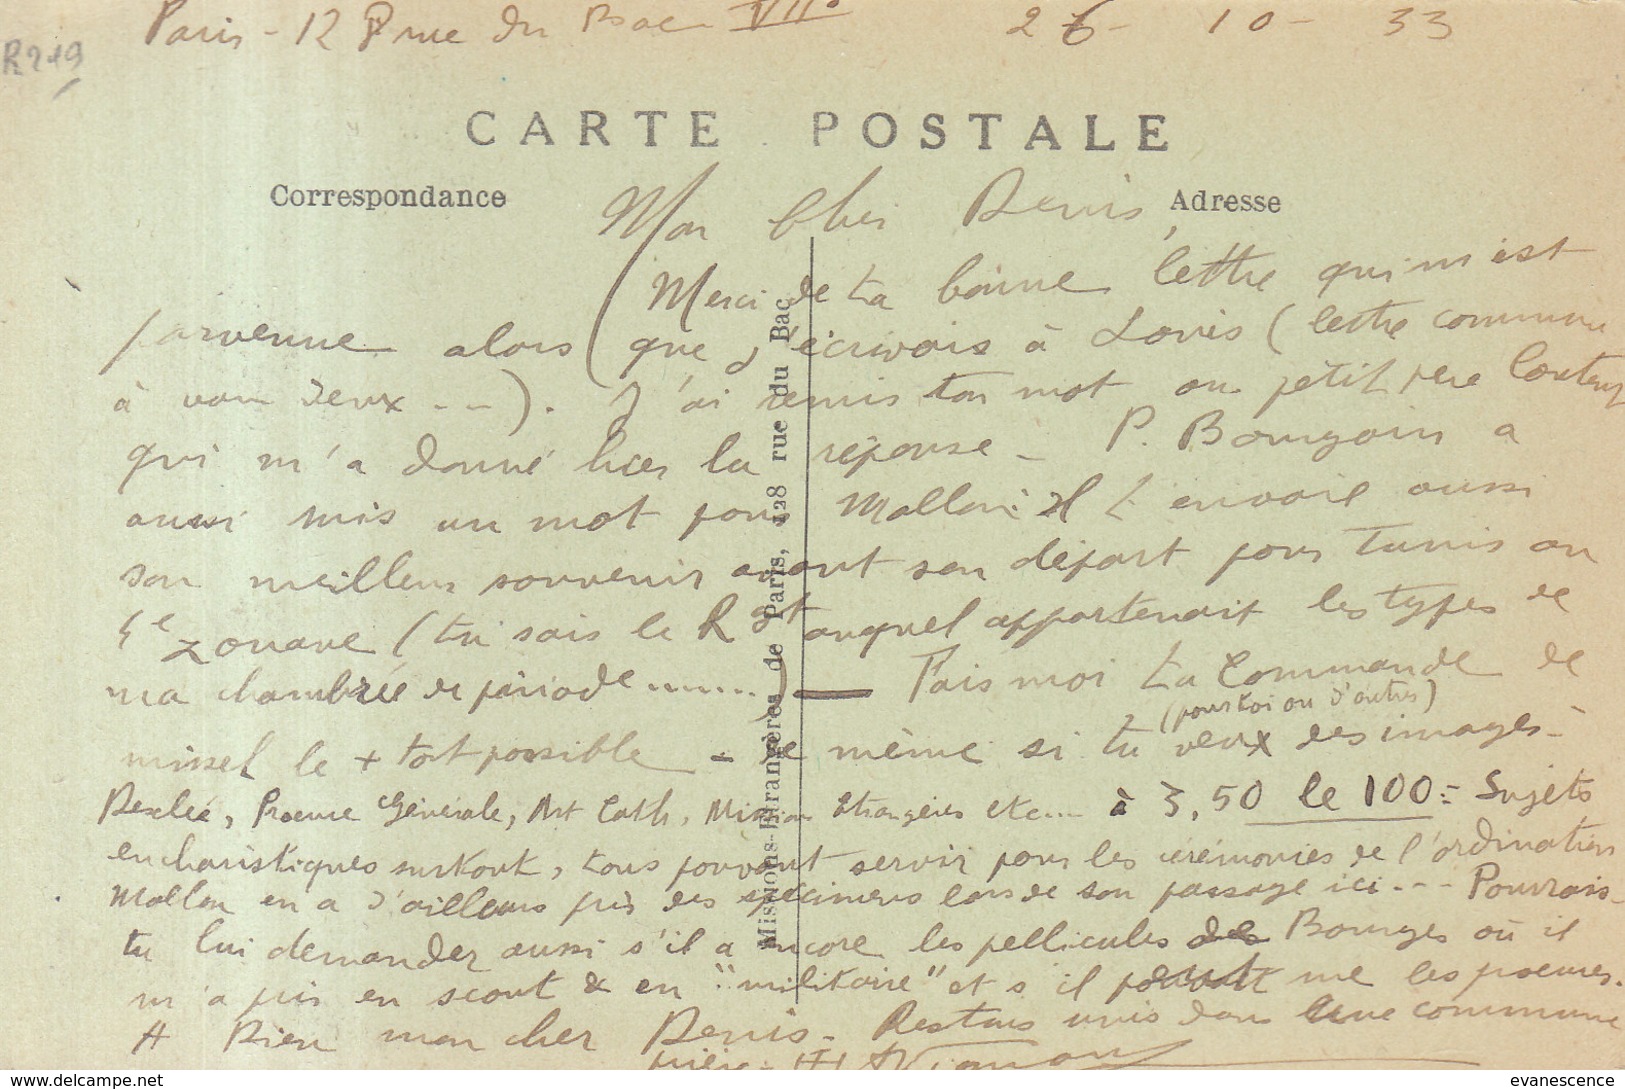 Paris - 12 rue du Bac VII°   26 - 10 - 33
R249
CARTE POSTALE
Correspondance
Adresse
Mon cher Denis,
Merci de ta bonne lettre qui m'est
parvenue alors que j'écrivais à Louis (lettre commune
à vous deux - -). J'ai remis ton mot au petit père
qui m'a donné hier la réponse - P. Bourgoin a
aussi mis un mot pour Mallon. Il t'envoie aussi
son meilleur souvenir avant son départ pour Tunis au
4e zouave (tu sais le Rgt auquel appartenait les types de
ma chambrée de période .......) — Fais moi ta commande de
(pour toi ou d'autres)
missel le + tôt possible - de même si tu veux des images -
Desclée, Procure Générale, Art Cath, Mission Etrangères etc... à 3,50 le 100 = Sujets
eucharistiques surtout, tous pouvant servir pour les cérémonies de l'ordination
Mallon en a d'ailleurs pris des spécimens lors de son passage ici - - - Pourrais-
tu lui demander aussi s'il a encore les pellicules de Bourges où il
m'a pris en scout & en "militaire" et s'il me les
A Dieu mon cher Denis - Restons unis dans une commune
prière -
Missions-Etrangères de Paris, 128 rue du Bac
evanescence